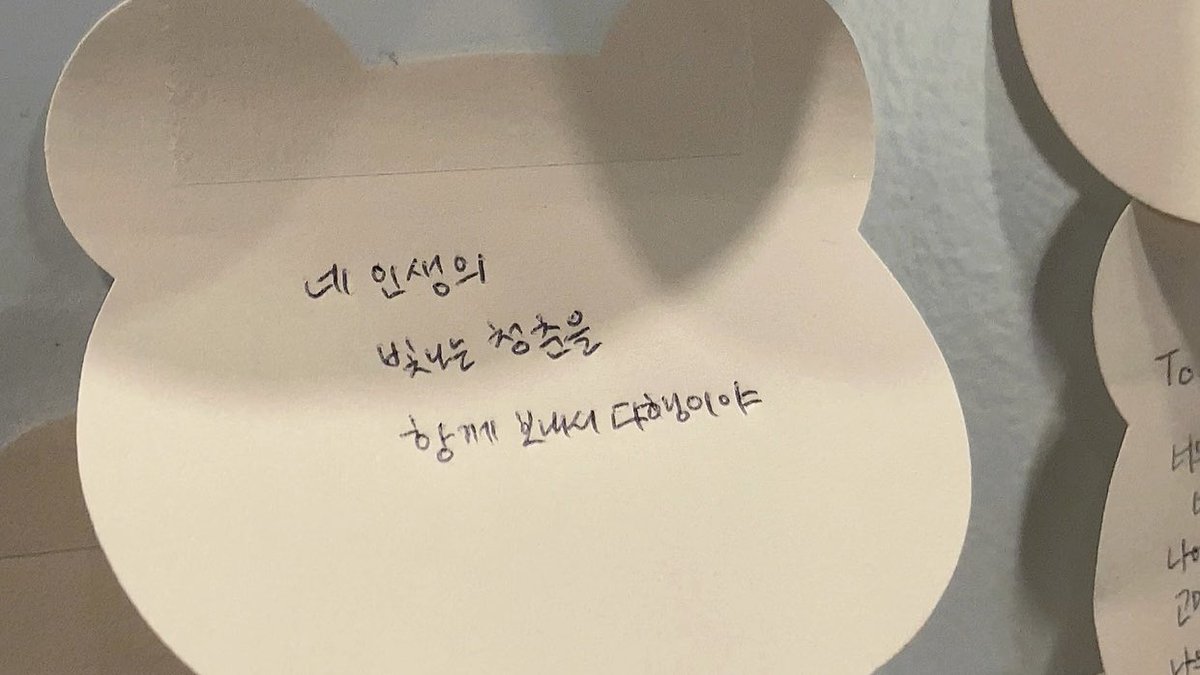 네 인생의
빛나는 청춘을
함께 보내서 다행이야
To